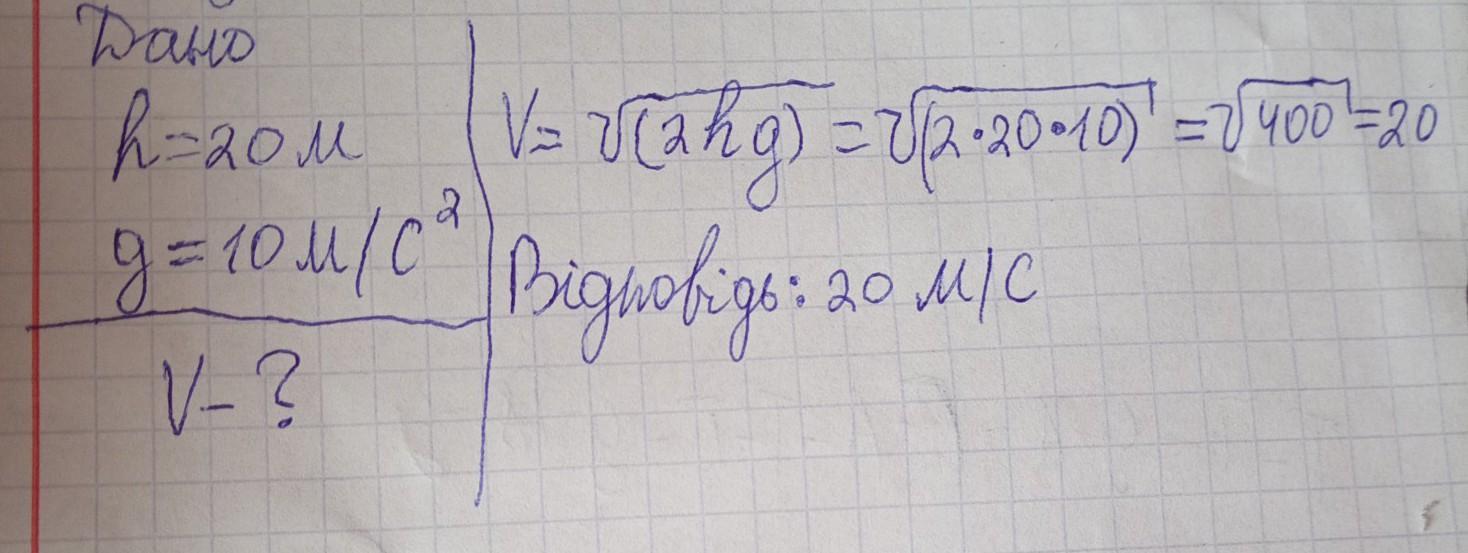 Дано
h=20м
g=10м/с²
V-?
V=√(2hg)=√(2·20·10)=√400=20
Відповідь: 20 м/с